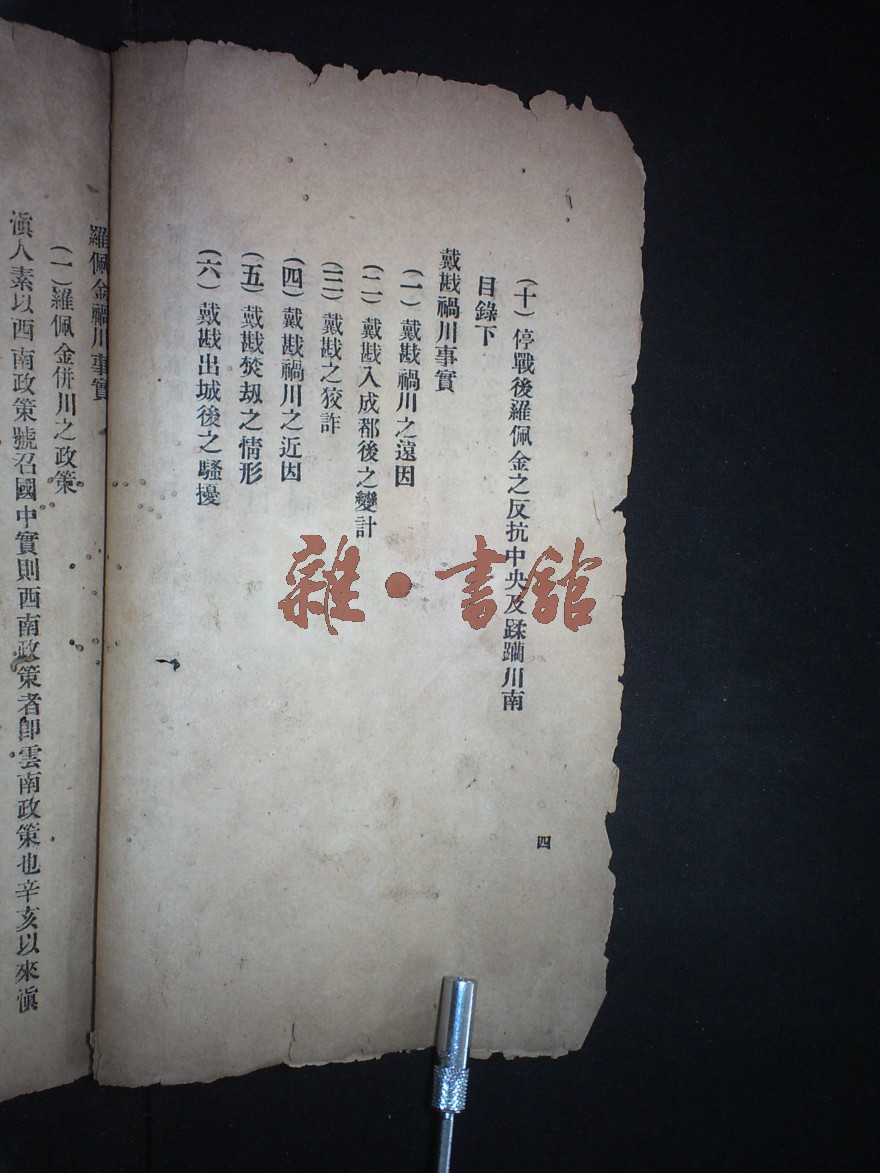 (十)停戰後羅佩金之反抗中央及蹂躪川南
目錄下
戴戡禍川事實
(一)戴戡禍川之遠因
(二)戴戡入成都後之變計
(三)戴戡之狡詐
(四)戴戡禍川之近因
(五)戴戡焚刼之情形
(六)戴戡出城後之騷擾
四
羅佩金禍川事實
(一)羅佩金併川之政策
滇人素以西南政策號召國中實則西南政策者卽雲南政策也辛亥以來滇
雜·書館